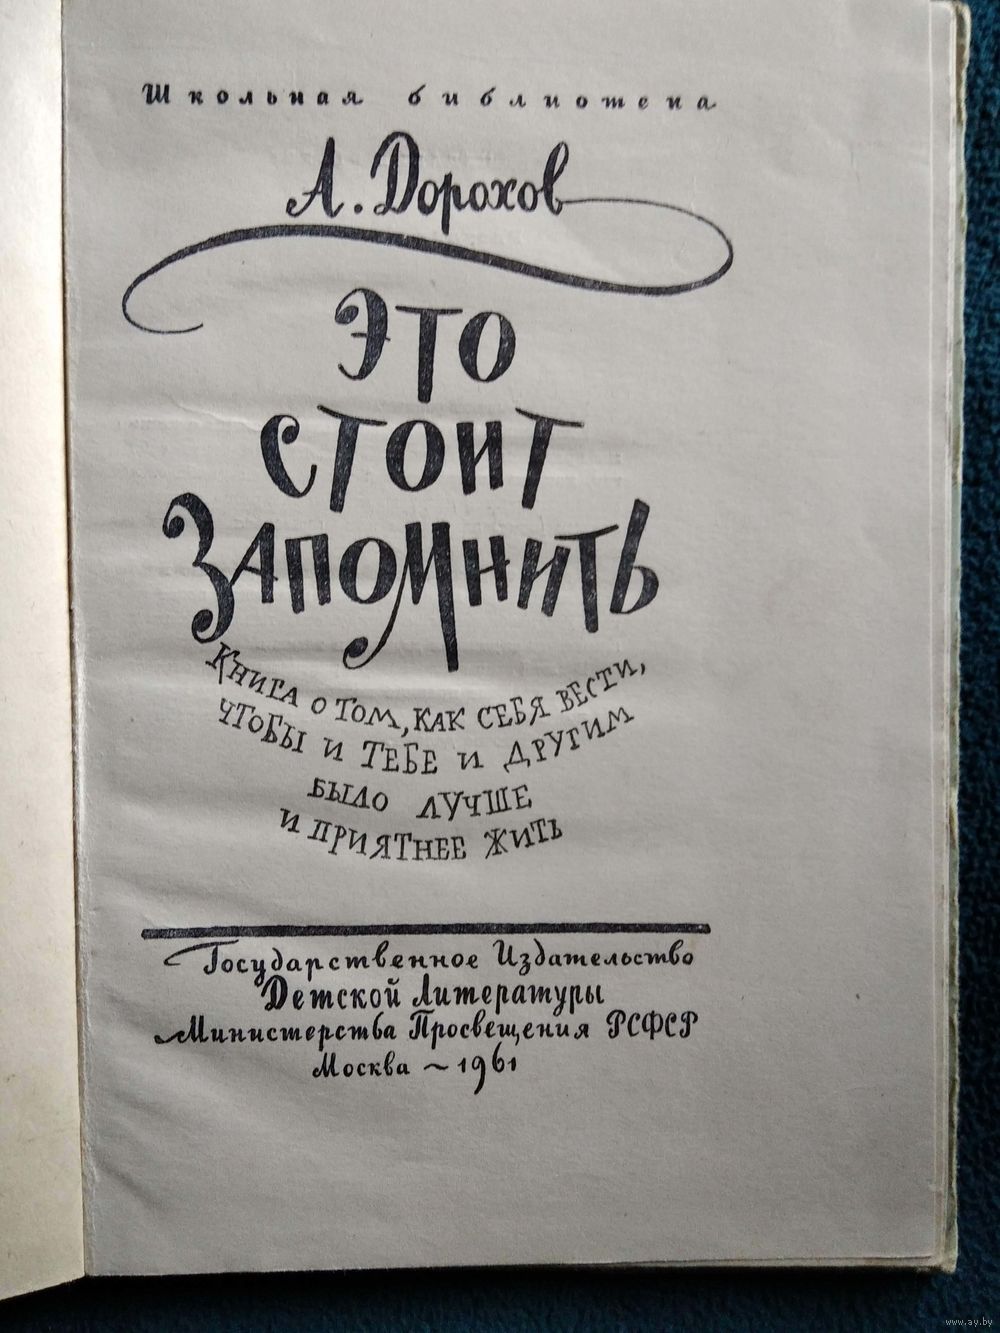 Школьная библиотека
А. Дорохов
ЭТО
СТОИТ
ЗАПОМНИТЬ
КНИГА О ТОМ, КАК СЕБЯ ВЕСТИ,
ЧТОБЫ И ТЕБЕ И ДРУГИМ
БЫЛО ЛУЧШЕ
И ПРИЯТНЕЕ ЖИТЬ
Государственное Издательство
Детской Литературы
Министерства Просвещения РСФСР
Москва ~ 1961
www.ay.by